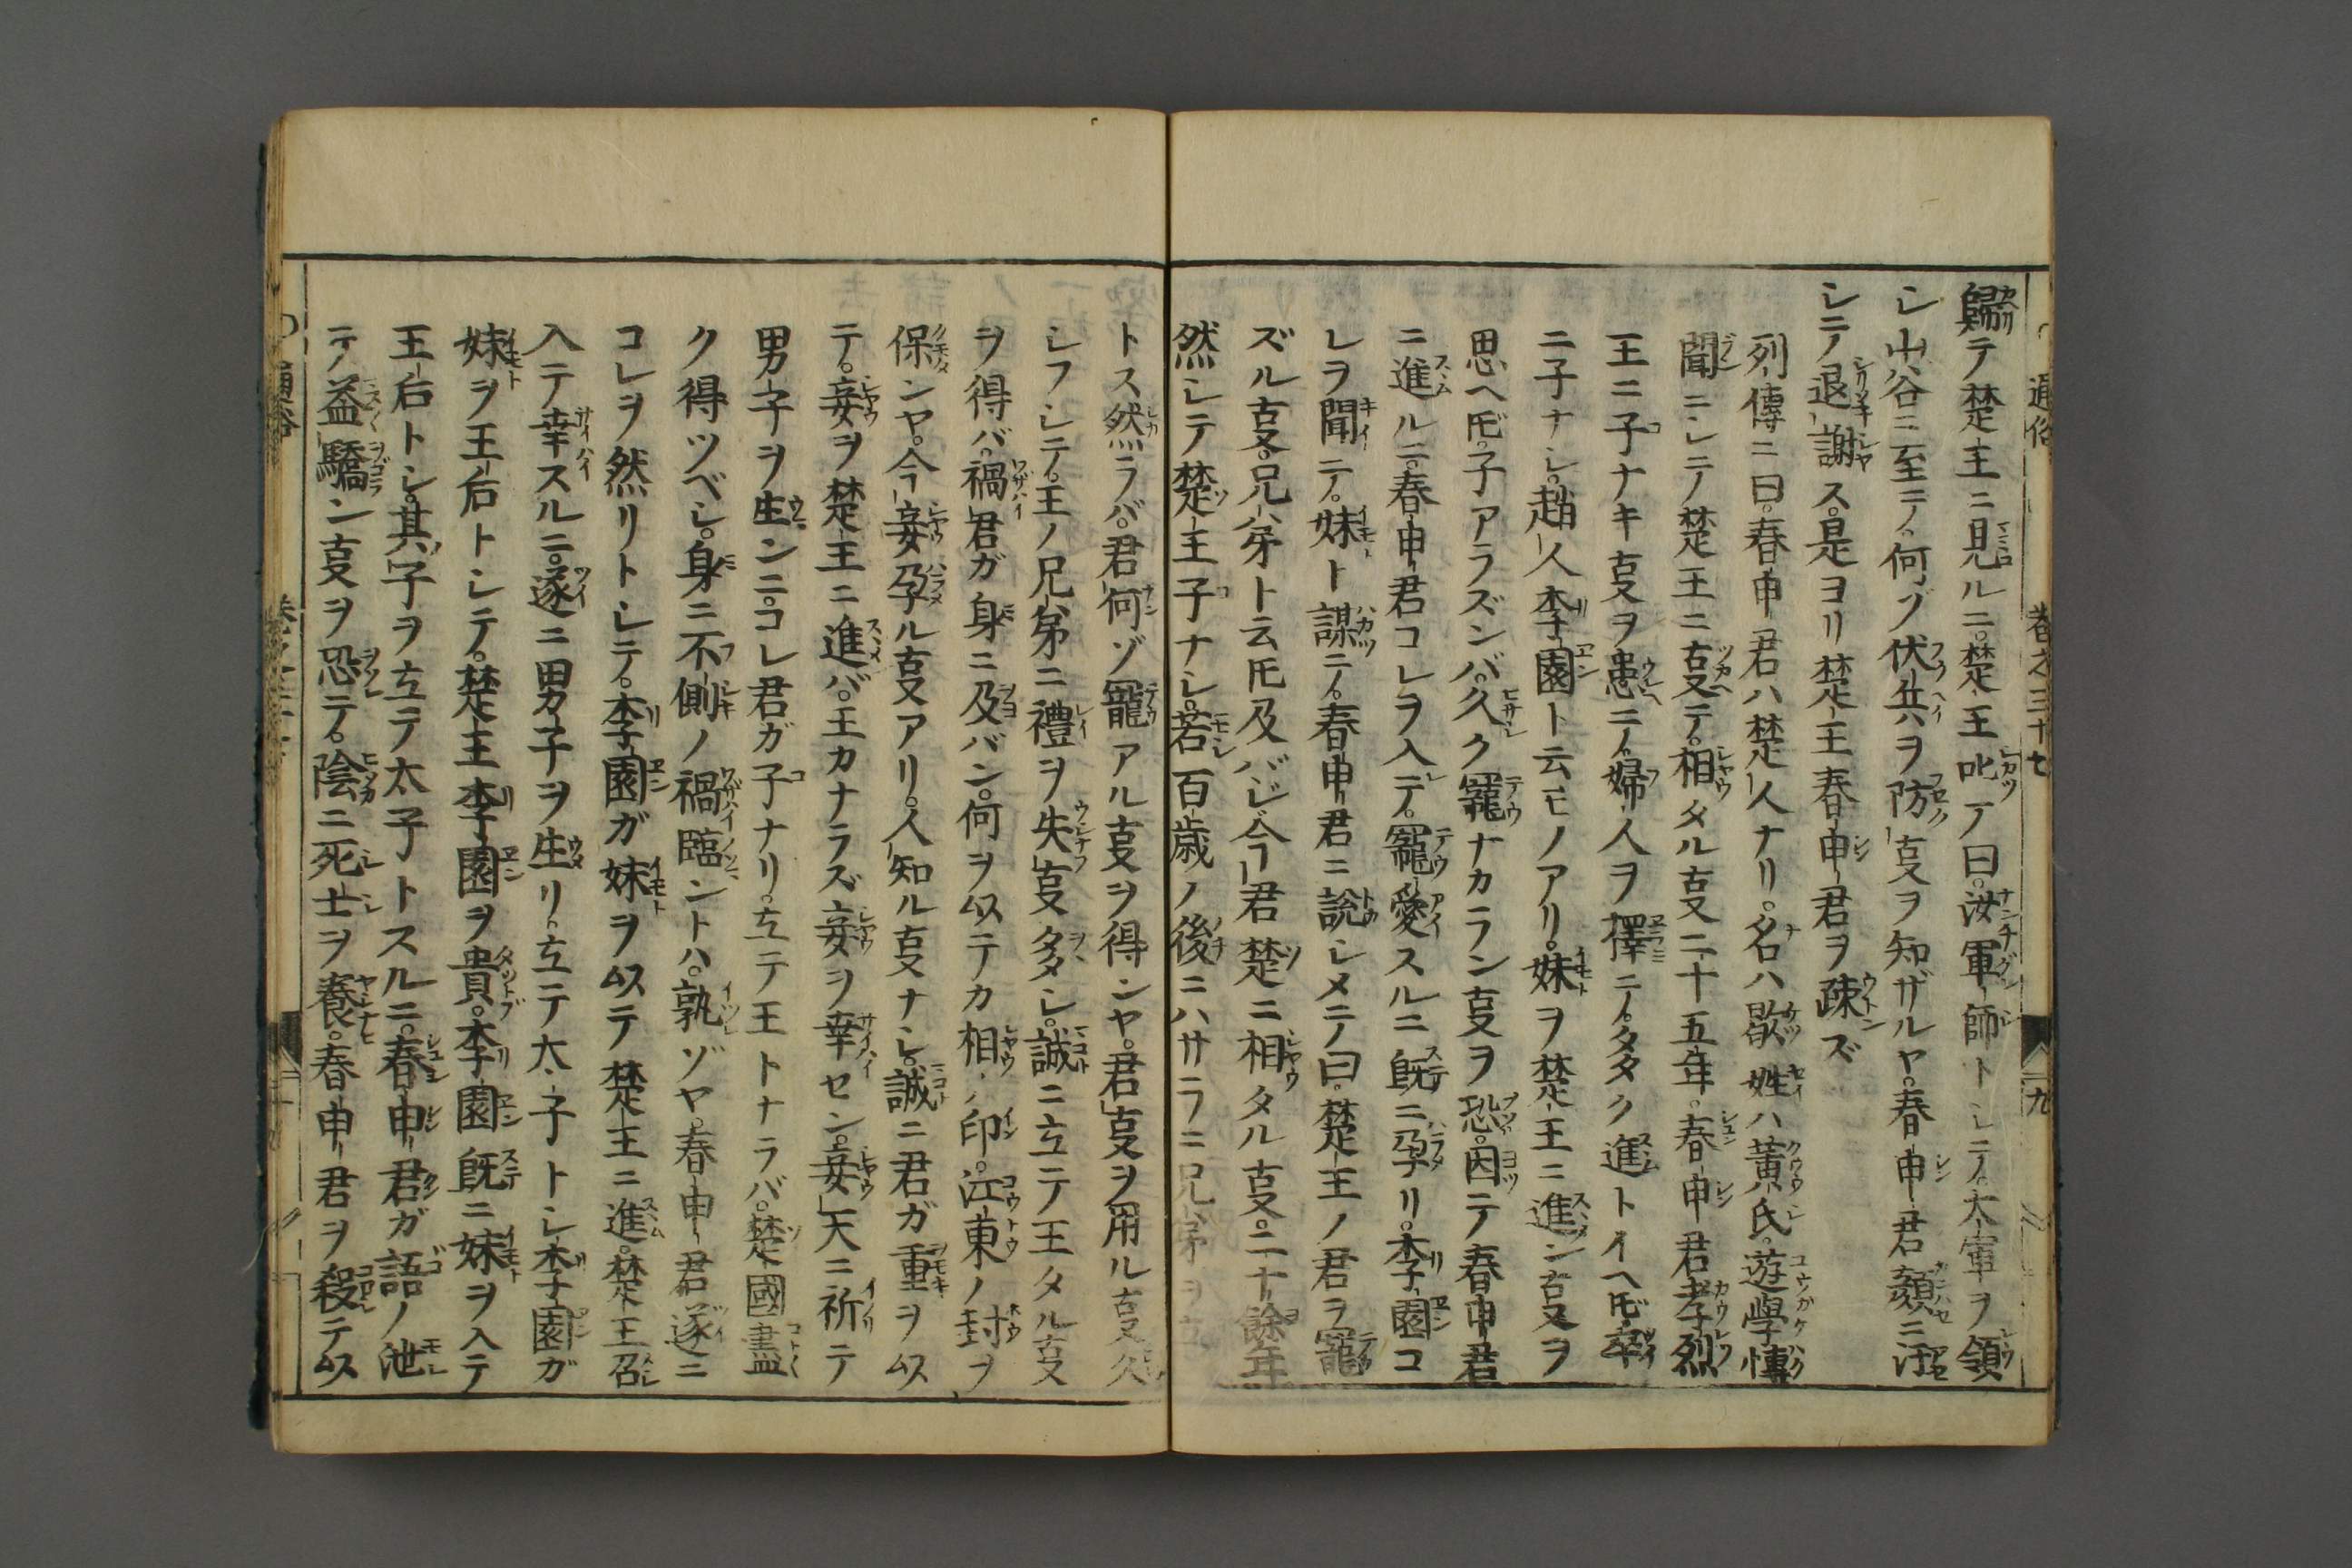 通俗 巻之三十七 十九
歸テ楚王ニ見ルニ。楚王叱テ曰。汝軍師トシテ。大軍ヲ領
シ山谷ニ至テ。何ゾ伏兵ヲ防叓ヲ知ザルヤ。春申君顏ニ汗
シテ退謝ス。是ヨリ楚王春申君ヲ疎ズ
列傳ニ曰。春申君ハ楚人ナリ。名ハ歇姓ハ黄氏。遊學博
聞ニシテ楚王ニ叓テ。相タル叓二十五年。春申君孝烈
王ニ子ナキ叓ヲ患テ。婦人ヲ擇テ。多ク進トイヘ𪜈。卒
ニ子ナシ。趙人李園ト云モノアリ。妹ヲ楚王ニ進ン叓ヲ
思ヘ𪜈。子アラズンバ。久ク寵ナカラン叓ヲ恐。因テ春申君
ニ進ルニ。春申君コレヲ入テ。寵愛スルニ既ニ孕リ。李園コ
レヲ聞テ。妹ト謀テ。春申君ニ説シメテ曰。楚王ノ君ヲ寵
ズル叓。兄弟ト云𪜈及バジ。今君楚ニ相タル叓。二十餘年
然シテ楚王子ナシ。若百歳ノ後ニハサラニ兄弟ヲ立
トス然ラバ。君何ゾ寵アル叓ヲ得ンヤ。君叓ヲ用ル叓久
シフシテ。王ノ兄弟ニ禮ヲ失叓多シ。誠ニ立テ王タル叓
ヲ得バ。禍君ガ身ニ及バン。何ヲ以テカ相ノ印。江東ノ封ヲ
保ンヤ。今妾孕ル叓アリ。人知ル叓ナシ。誠ニ君ガ重ヲ以
テ。妾ヲ楚王ニ進バ。王カナラズ妾ヲ幸セン。妾天ニ祈テ
男子ヲ生ンニ。コレ君ガ子ナリ。立テ王トナラバ。楚國盡
ク得ツベシ。身ニ不側ノ禍臨ントハ。孰ゾヤ。春申君遂ニ
コレヲ然リトシテ。李園ガ妹ヲ以テ楚王ニ進。楚王召
入テ幸スルニ。遂ニ男子ヲ生リ。立テ太子トシ李園ガ
妹ヲ王后トシテ。楚王李園ヲ貴。李園既ニ妹ヲ入テ
王后トシ。其子ヲ立テ太子トスルニ。春申君ガ語ノ泄
テ益驕ン叓ヲ恐テ。陰ニ死士ヲ養。春申君ヲ殺テ以
通俗